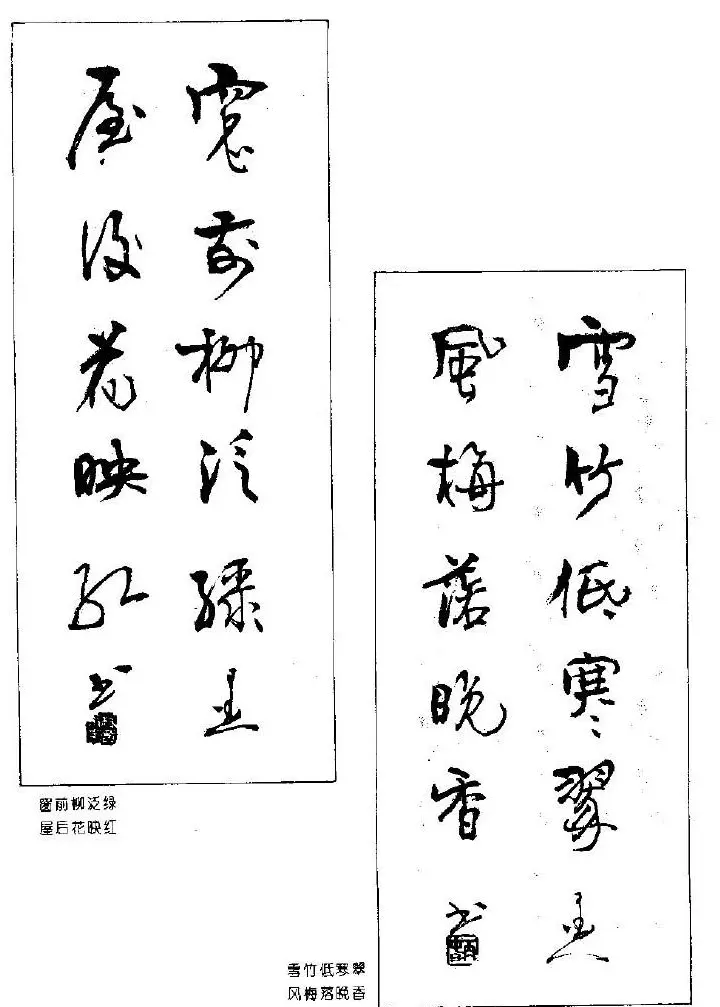 窗前柳泛綠
屋後花映紅
书
窗前柳泛绿
屋后花映红
雪竹低寒翠
風梅落晚香
书
雪竹低寒翠
风梅落晚香